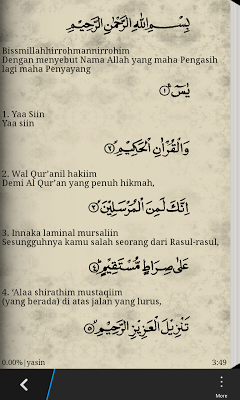 بِسْمِ اللهِ الرَّحْمٰنِ الرَّحِيْمِ
Bissmillahhirrohmannirrohim
Dengan menyebut Nama Allah yang maha Pengasih
lagi maha Penyayang
يٰسٓ ۝١
1. Yaa Siin
Yaa siin
وَالْقُرْاٰنِ الْحَكِيْمِ ۝٢
2. Wal Qur'anil hakiim
Demi Al Qur'an yang penuh hikmah,
اِنَّكَ لَمِنَ الْمُرْسَلِيْنَ ۝٣
3. Innaka laminal mursaliin
Sesungguhnya kamu salah seorang dari Rasul-rasul,
عَلٰى صِرَاطٍ مُّسْتَقِيْمٍ ۝٤
4. 'Alaa shirathim mustaqiim
(yang berada) di atas jalan yang lurus,
تَنْزِيْلَ الْعَزِيْزِ الرَّحِيْمِ ۝٥
0.00%|yasin 3:49
More